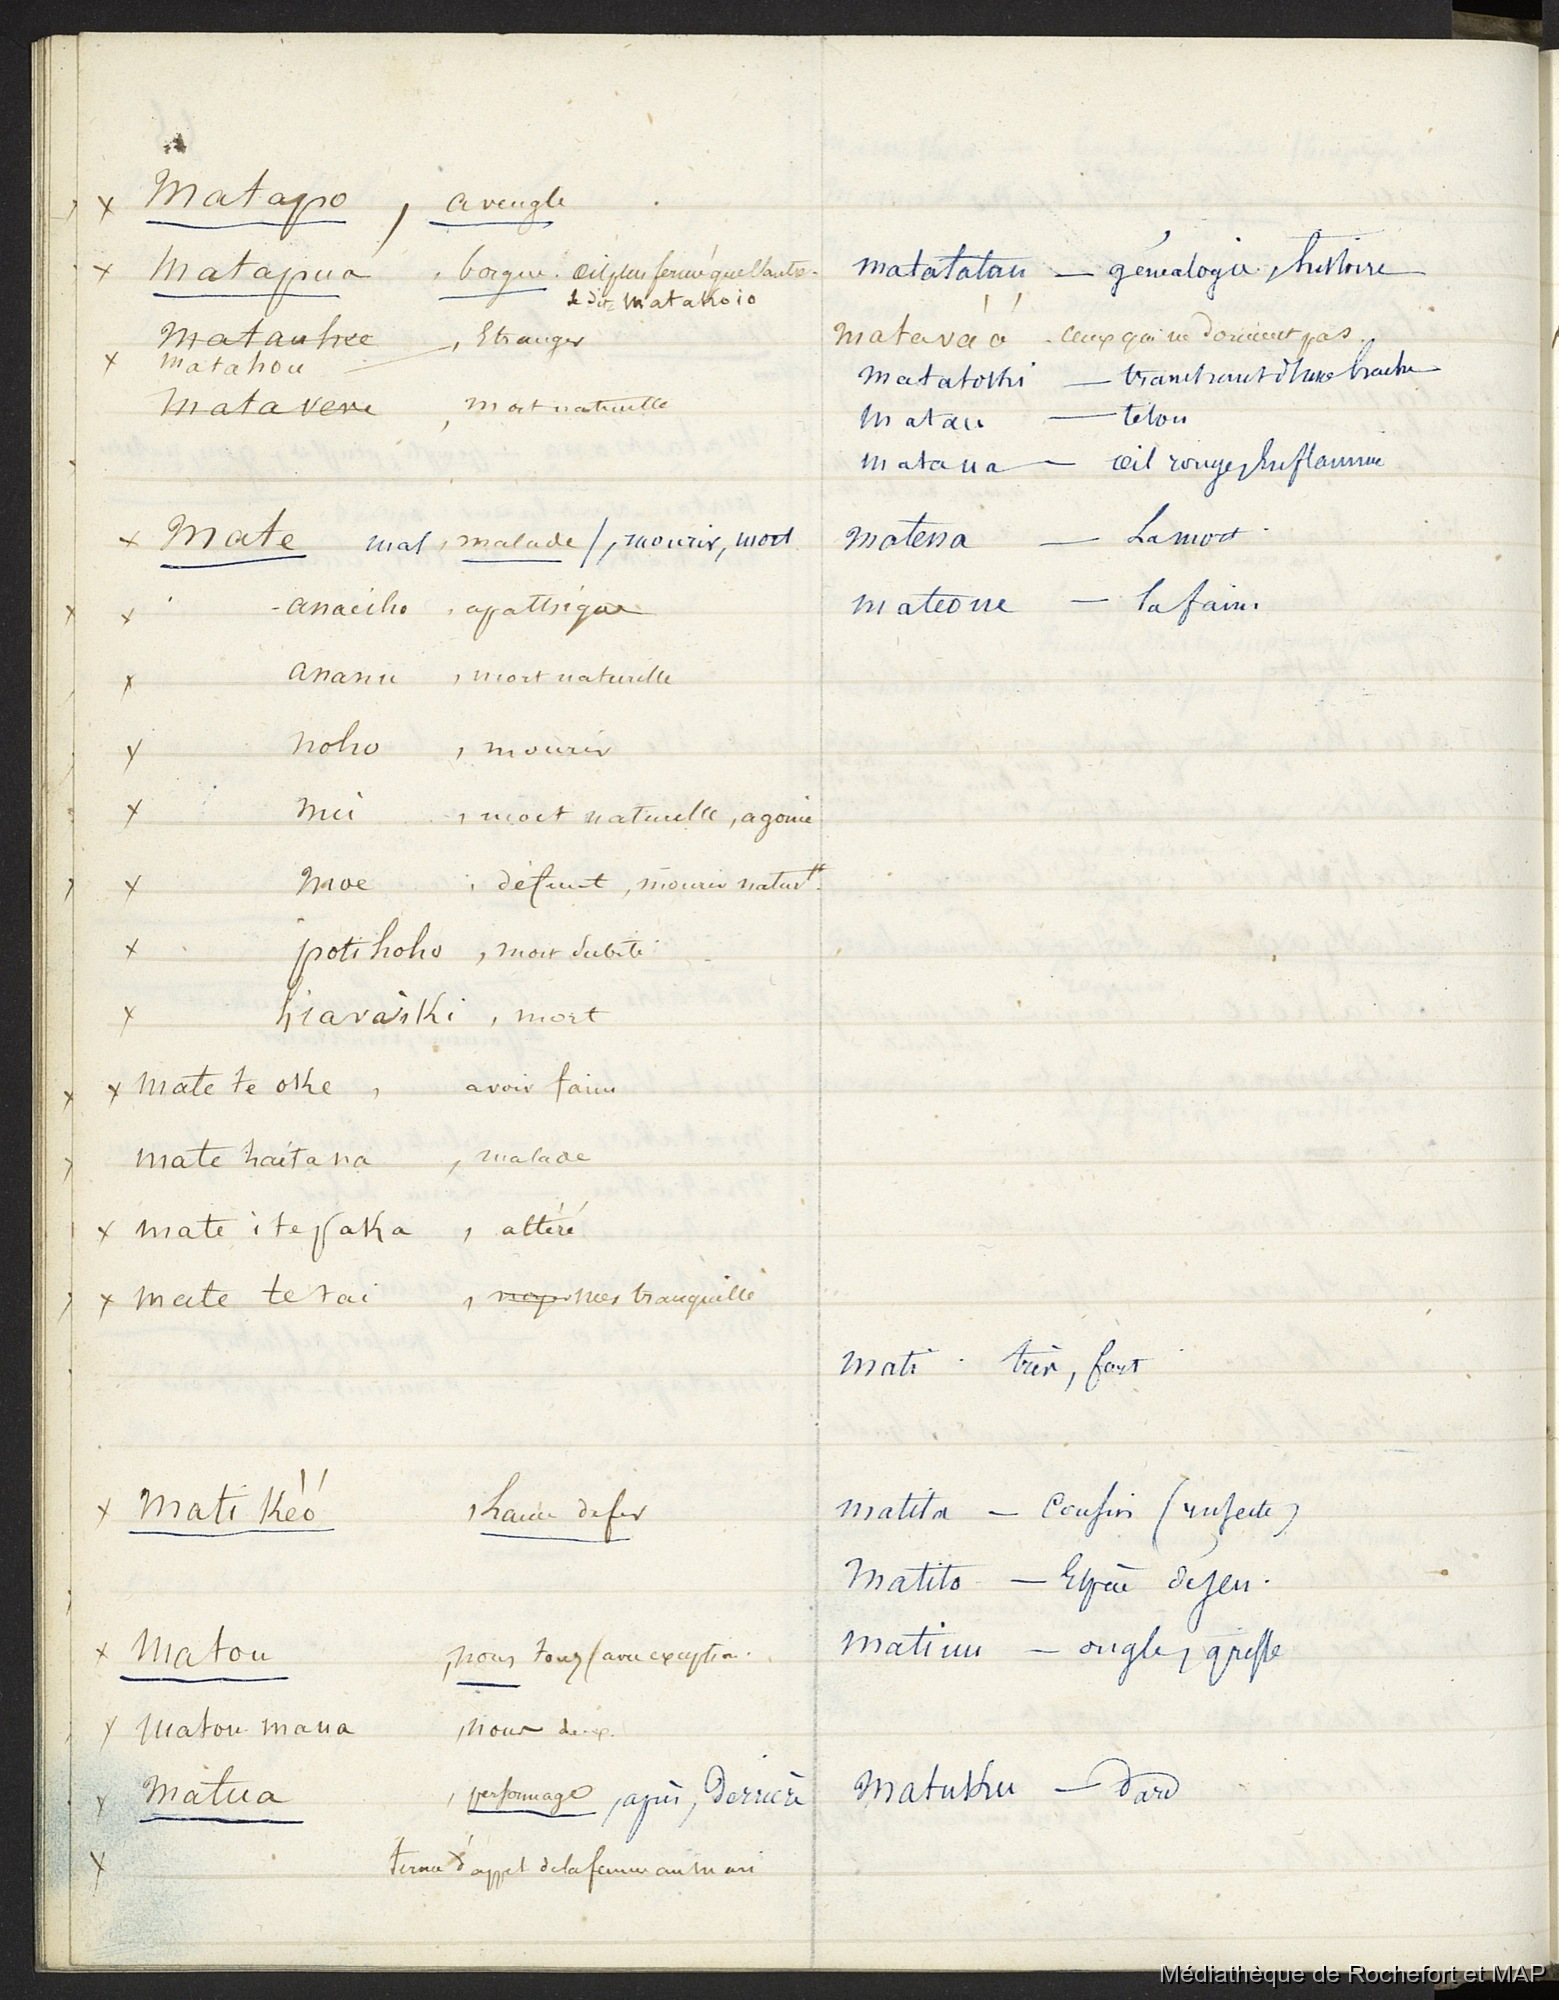 x Matapo , aveugle
x Matapua , borgne. oeil plus fermé que l'autre
se dit matakoio
Matauhee , Etranger
x matahou
Matavere , mort naturelle
x Mate mal, malade /, mourir, mort
x x - anaeiho , apathique
x ananu , mort naturelle
x noho , mourir
x mii , mort naturelle, agonie
x moe , défunt, mourir natur^lt.
x poti hoho , mort subite
x havaiki , mort
x x mate te oke , avoir faim
mate haitana , malade
x mate i te paka , altéré
x mate te tai , mer tranquille
x Mati kéó , haine de fer
x Matou , nous tous (avec exception.
x matou maua , nous deux.
x Matua , personnage, après, Derrière
x terme d'appel de la femme au mari
matatatau — généalogie, histoire
Mataváá . ceux qui ne dorment pas.
matatoki — tranchant d'une hache
Matau — telou
mataua — oeil rouge, enflammé
Matena — La mort.
mateone — la faim.
Mati . très, fort
Matita — Cousin (insecte)
Matito — Espèce de jeu.
Matiuu — ongle, griffe
Matukuu — Dard
Médiathèque de Rochefort et MAP